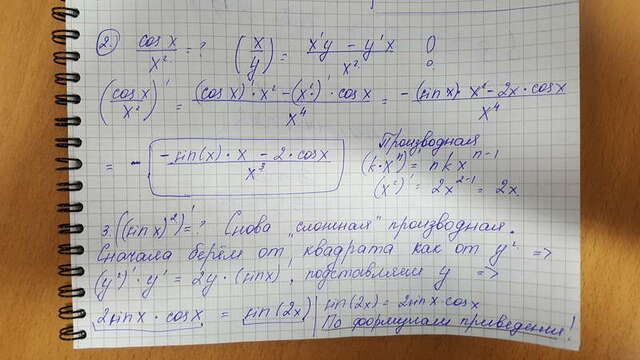 2. cos x / x² = ? (x/y)' = (x'y - y'x) / x² 0
(cos x / x²)' = ((cos x)' · x² - (x²)' · cos x) / x⁴ = (-(sin x) · x² - 2x · cos x) / x⁴
= - (-sin(x) · x - 2 · cos x) / x³
Производная
(k·xⁿ)' = n k xⁿ⁻¹
(x²)' = 2x²⁻¹ = 2x
3. ((sin x)²)' = ? Снова "сложная" производная.
Сначала берём от квадрата как от y² =>
(y²)' · y' = 2y · (sin x)', подставляем y =>
2 sin x · cos x = sin(2x) | sin(2x) = 2 sin x · cos x
По формулам приведения!